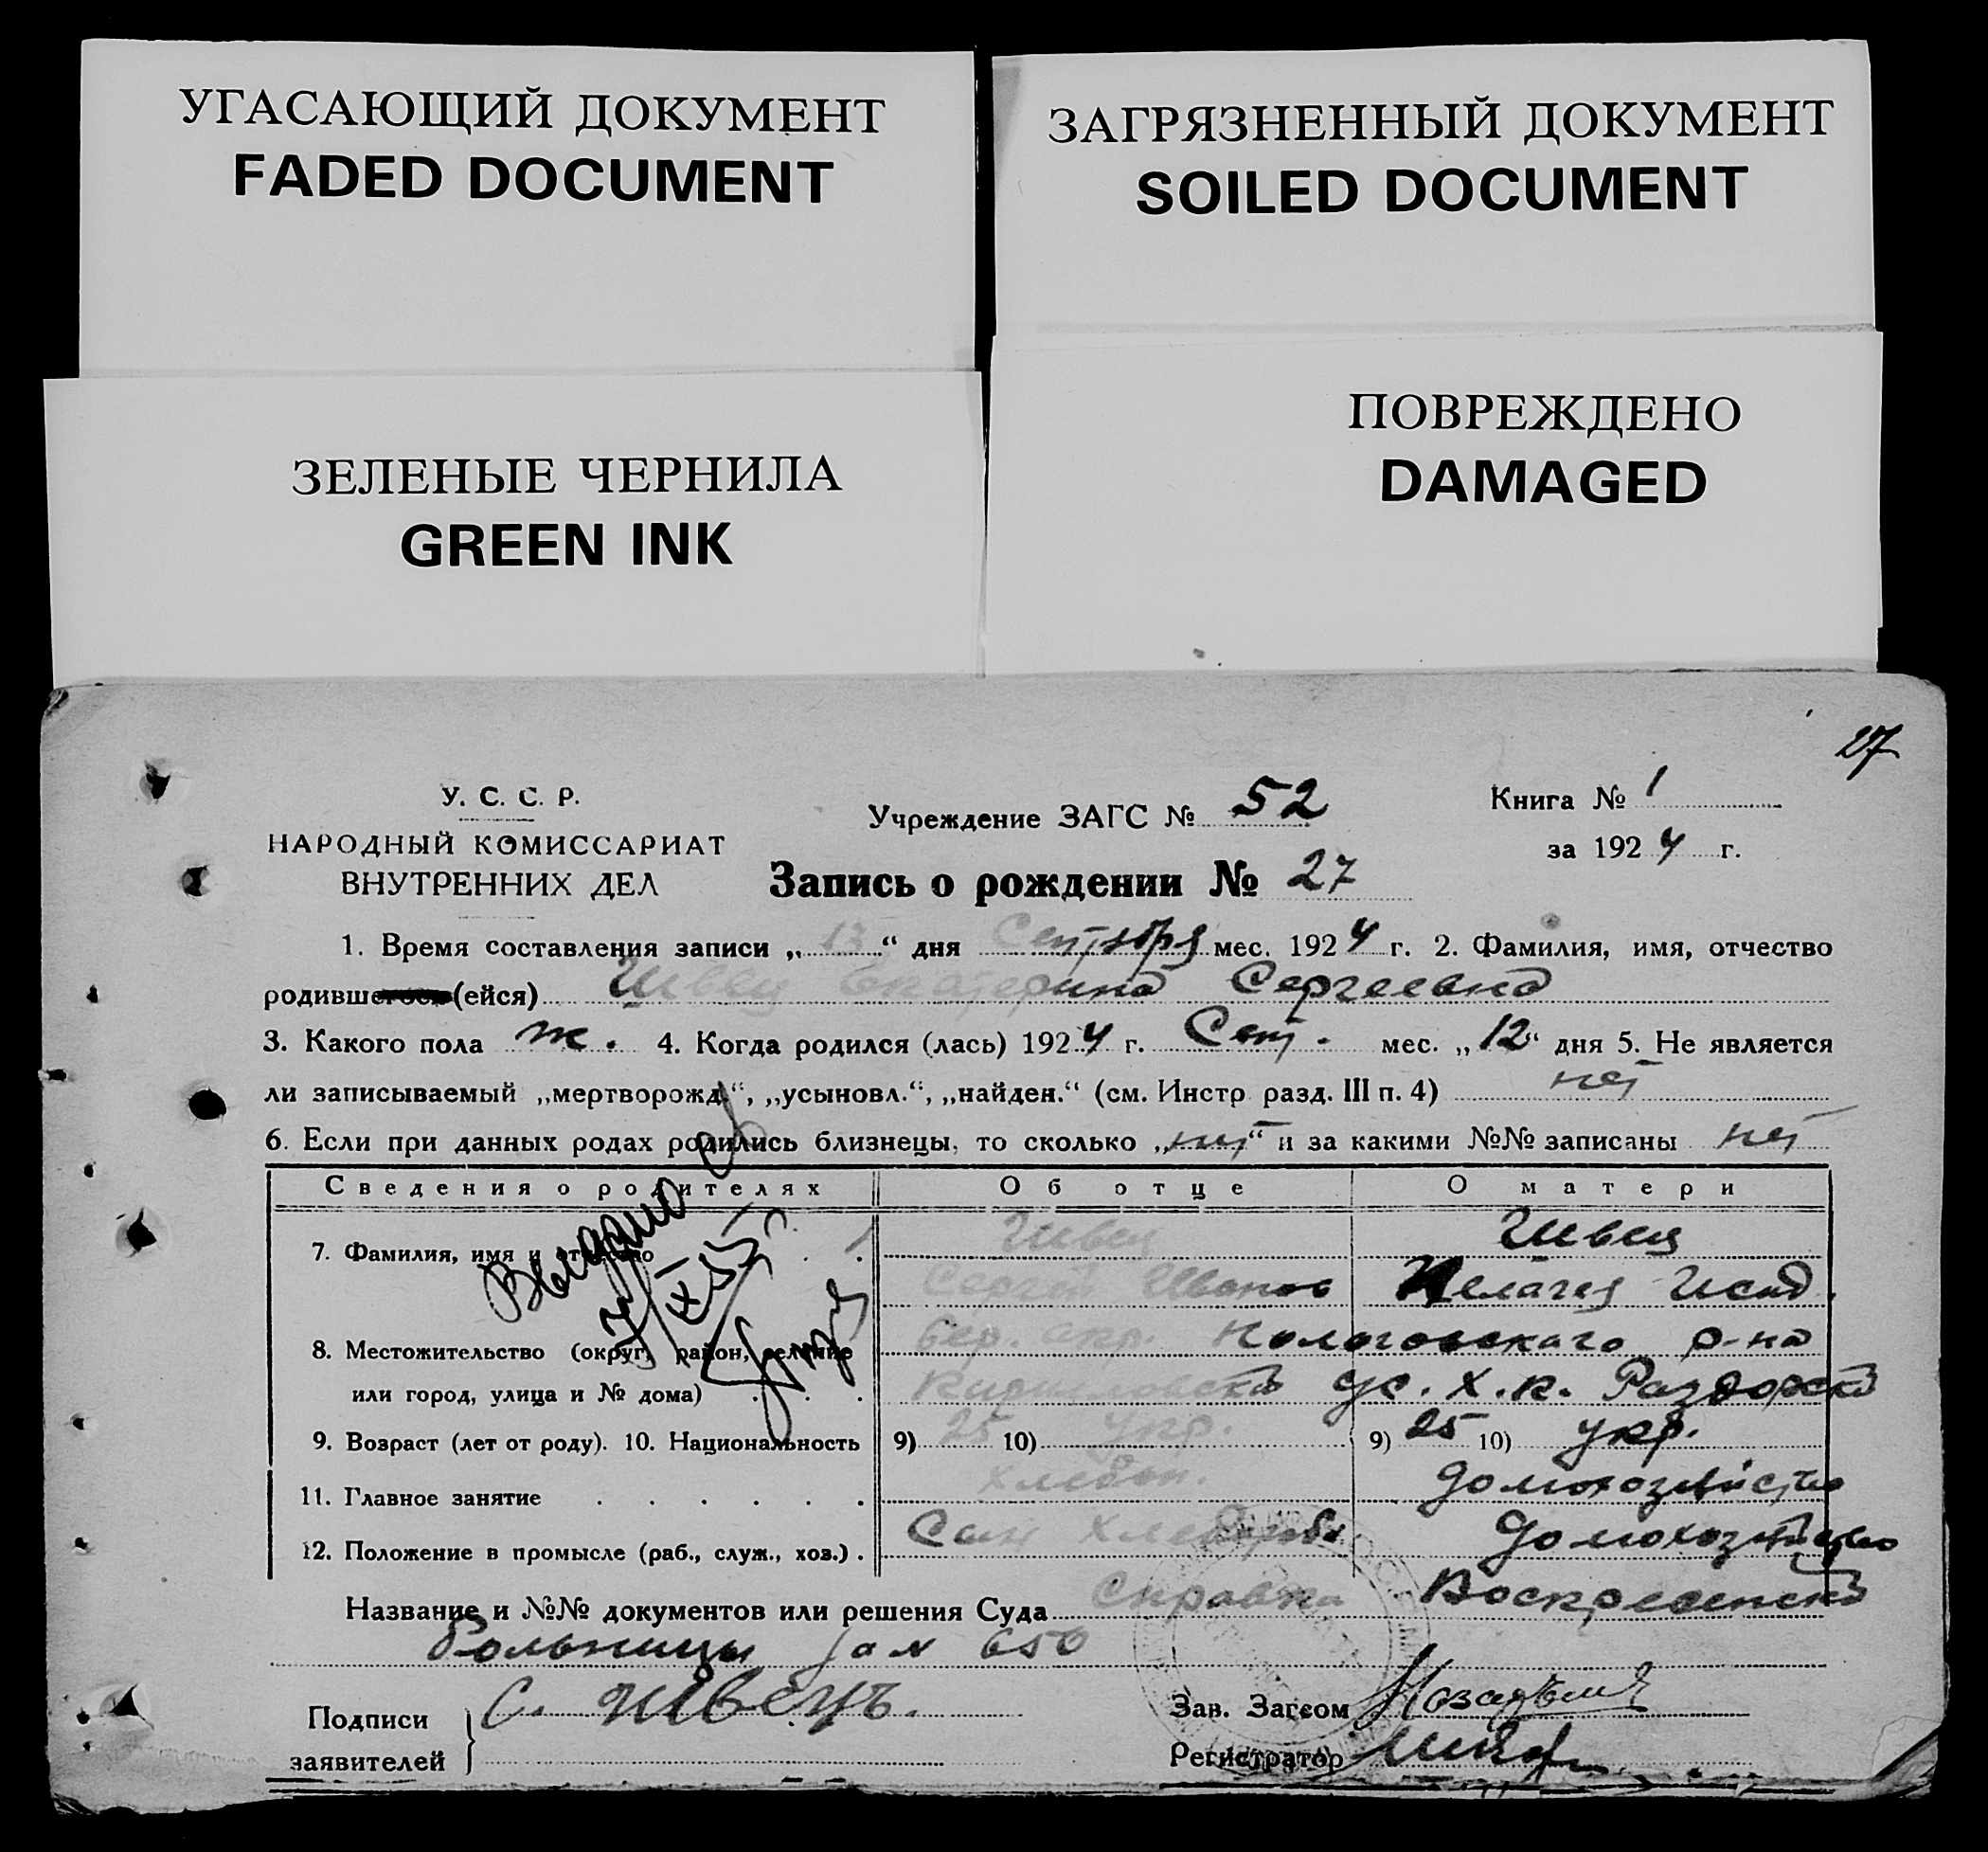 УГАСАЮЩИЙ ДОКУМЕНТ
FADED DOCUMENT
ЗАГРЯЗНЕННЫЙ ДОКУМЕНТ
SOILED DOCUMENT
ЗЕЛЕНЫЕ ЧЕРНИЛА
GREEN INK
ПОВРЕЖДЕНО
DAMAGED
27
У. С. С. Р.
НАРОДНЫЙ КОМИССАРИАТ
ВНУТРЕННИХ ДЕЛ
Учреждение ЗАГС № 52
Книга № 1
за 1924 г.
Запись о рождении № 27
1. Время составления записи „13“ дня Сентября мес. 1924 г. 2. Фамилия, имя, отчество
родившегося (ейся) Швец Екатерина Сергеевна
3. Какого пола ж. 4. Когда родился (лась) 1924 г. Сент. мес. „12“ дня 5. Не является
ли записываемый „мертворожд.“, „усыновл.“, „найден.“ (см. Инстр. разд. III п. 4) нет
6. Если при данных родах родились близнецы, то сколько „нет“ и за какими №№ записаны нет
Сведения о родителях Об отце О матери
7. Фамилия, имя и отчество Швец Швец
Сергей Иванов Пелагея Исид.
8. Местожительство (округ, район, селение Бер. окр. Пологовскаго р-на
или город, улица и № дома) Кирилловска с. Х.к. Раздорска
9. Возраст (лет от роду). 10. Национальность 9) 25 10) укр. 9) 25 10) укр.
11. Главное занятие Хлебоп. домохозяйство
12. Положение в промысле (раб., служ., хоз.) Сам Хлебороб домохозяйство
Выдано св
Название и №№ документов или решения Суда Справка Воскресенска
больницы за № 650
Подписи
заявителей
С. Швець.
Зав. Загсом
Регистратор